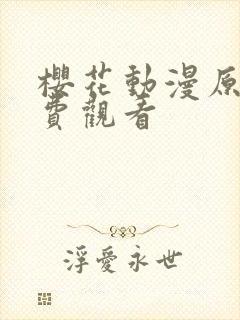 櫻花動漫原
費觀看
浮愛永世